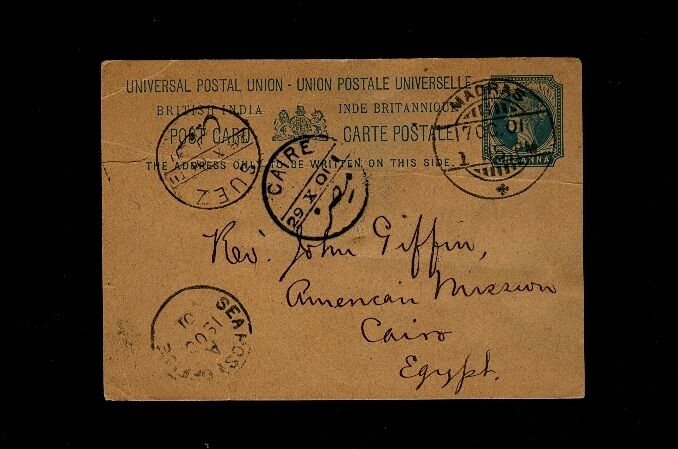 UNIVERSAL POSTAL UNION - UNION POSTALE UNIVERSELLE
BRITISH INDIA INDE BRITANNIQUE
POST CARD CARTE POSTALE
THE ADDRESS ONLY TO BE WRITTEN ON THIS SIDE.
ONE ANNA
MADRAS
17 OC. 01
PM
SUEZ
CAIRE
29 X 01
Rev. John Giffin,
American Mission
Cairo
Egypt.
SEA POST
A
19 OC
01